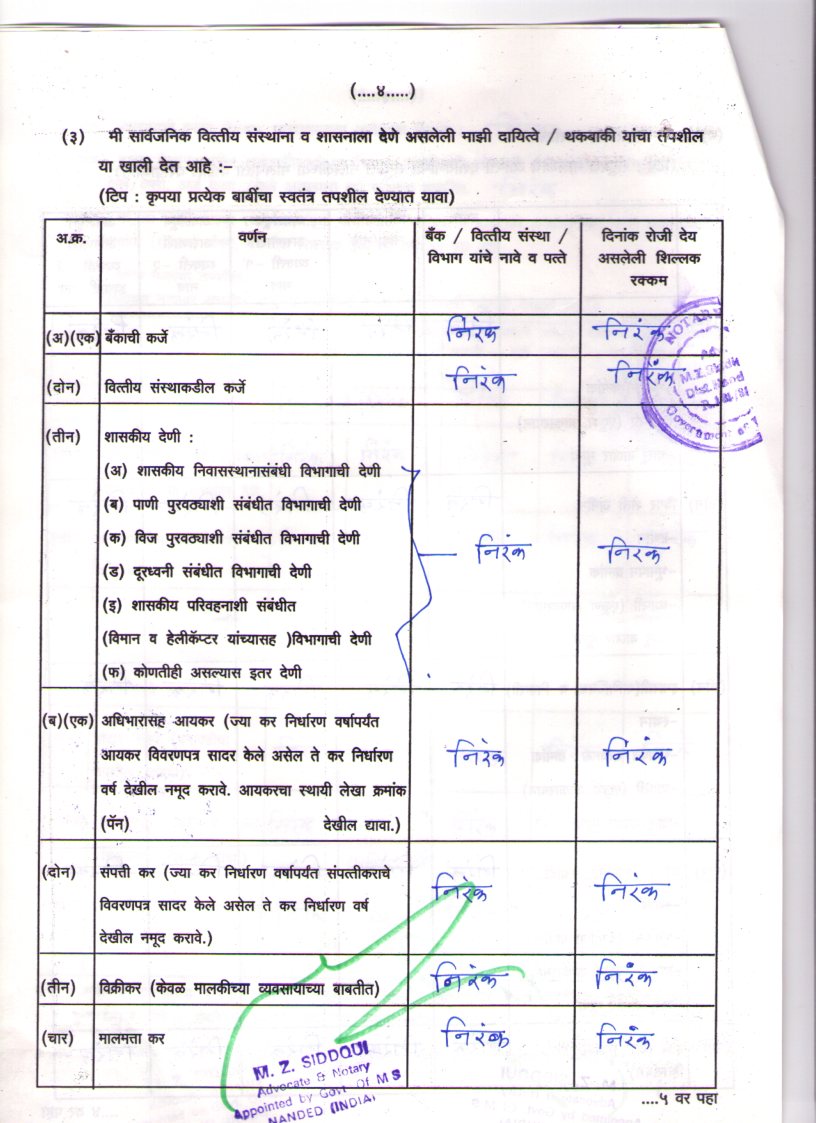 (....४.....)
(३) मी सार्वजनिक वित्तीय संस्थाना व शासनाला देणे असलेली माझी दायित्वे / थकबाकी यांचा तपशील
या खाली देत आहे :–
(टिप : कृपया प्रत्येक बाबींचा स्वतंत्र तपशील देण्यात यावा)
अ.क्र. वर्णन बँक / वित्तीय संस्था / दिनांक रोजी देय
विभाग यांचे नावे व पत्ते असलेली शिल्लक
रक्कम
(अ)(एक) बँकाची कर्जे निरंक निरंक
(दोन) वित्तीय संस्थाकडील कर्जे निरंक निरंक
(तीन) शासकीय देणी :
(अ) शासकीय निवासस्थानासंबंधी विभागाची देणी
(ब) पाणी पुरवठ्याशी संबंधीत विभागाची देणी
(क) विज पुरवठ्याशी संबंधीत विभागाची देणी
निरंक निरंक
(ड) दूरध्वनी संबंधीत विभागाची देणी
(इ) शासकीय परिवहनाशी संबंधीत
(विमान व हेलीकॅप्टर यांच्यासह )विभागाची देणी
(फ) कोणतीही असल्यास इतर देणी
(ब)(एक) अधिभारासह आयकर (ज्या कर निर्धारण वर्षापर्यंत
आयकर विवरणपत्र सादर केले असेल ते कर निर्धारण निरंक निरंक
वर्ष देखील नमूद करावे. आयकरचा स्थायी लेखा क्रमांक
(पॅन) देखील द्यावा.)
(दोन) संपत्ती कर (ज्या कर निर्धारण वर्षापर्यंत संपत्तीकराचे
विवरणपत्र सादर केले असेल ते कर निर्धारण वर्ष निरंक निरंक
देखील नमूद करावे.)
(तीन) विक्रीकर (केवळ मालकीच्या व्यवसायाच्या बाबतीत) निरंक निरंक
(चार) मालमत्ता कर निरंक निरंक
NOTARY
M.Z.Siddi
Dist.Nand
Government of
M. Z. SIDDQUI
Advocate & Notary
Appointed by Govt. Of M S
NANDED (INDIA)
....५ वर पहा